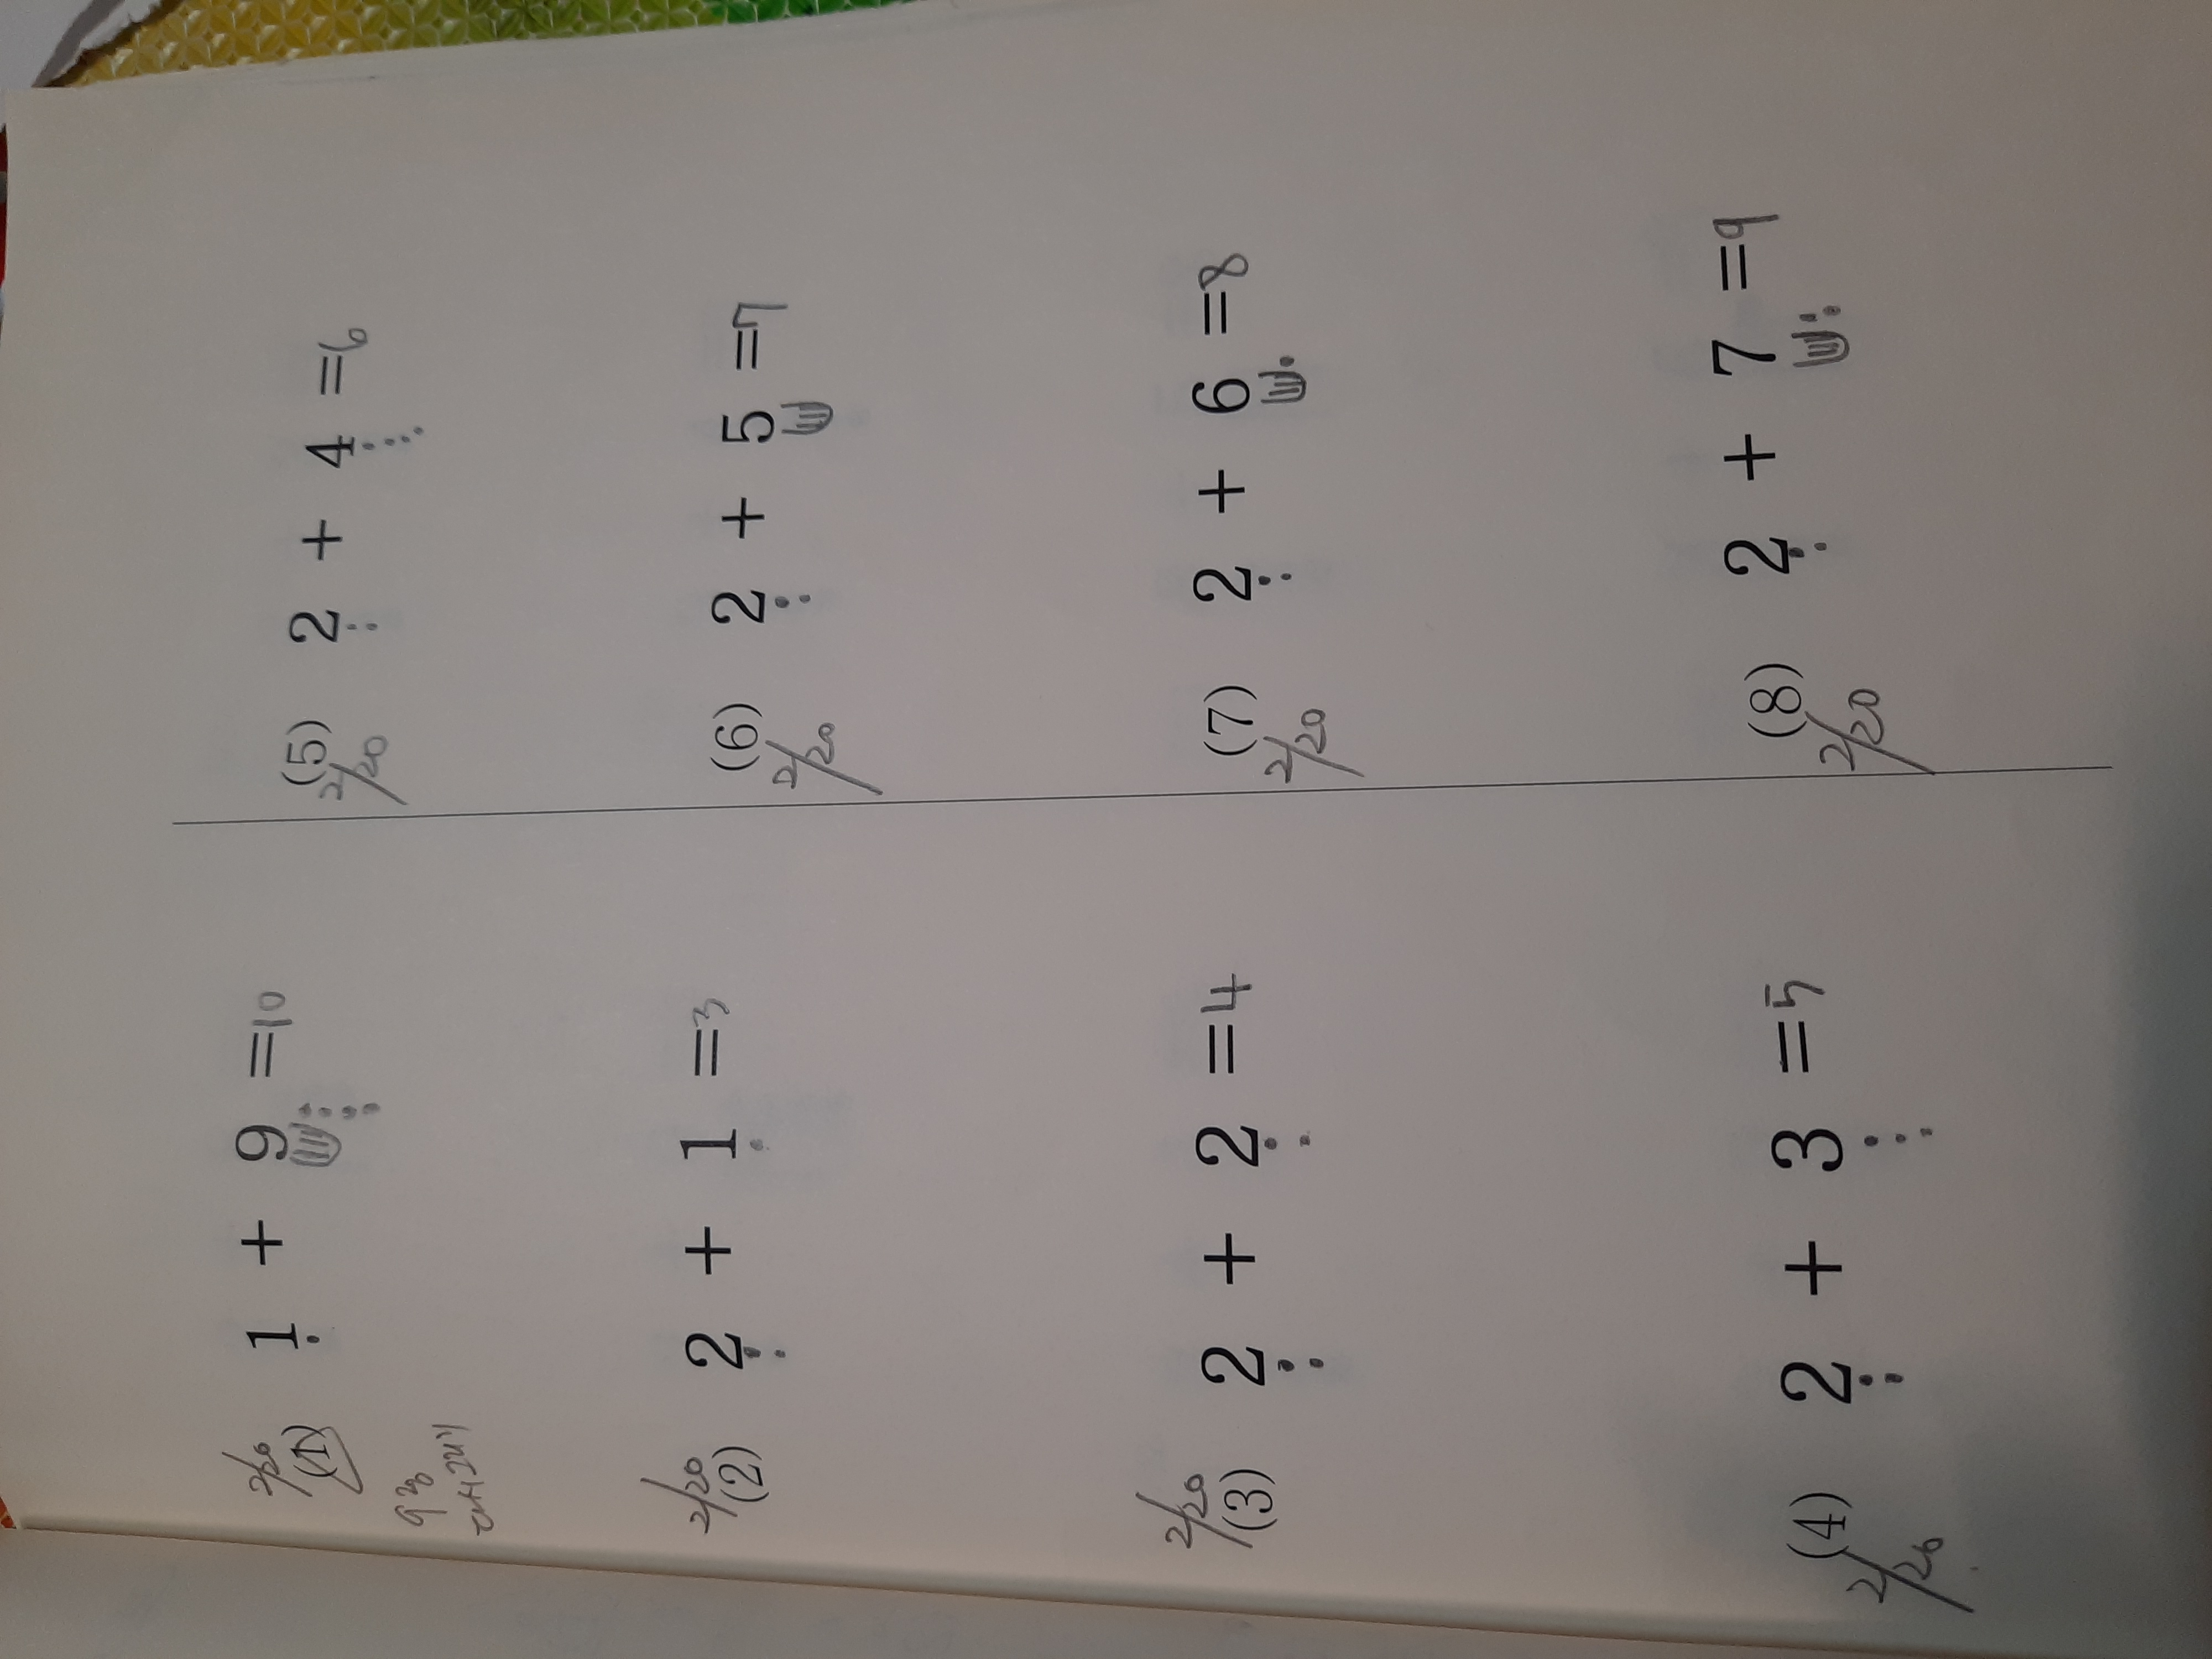 2/20
(1) 1 + 9 =10
(2) 2 + 1 =3
2/20
(3) 2 + 2 =4
2/20
(4) 2 + 3 =5
2/20
(5) 2 + 4 =6
2/20
(6) 2 + 5 =7
2/20
(7) 2 + 6 =8
2/20
(8) 2 + 7 =9
2/20